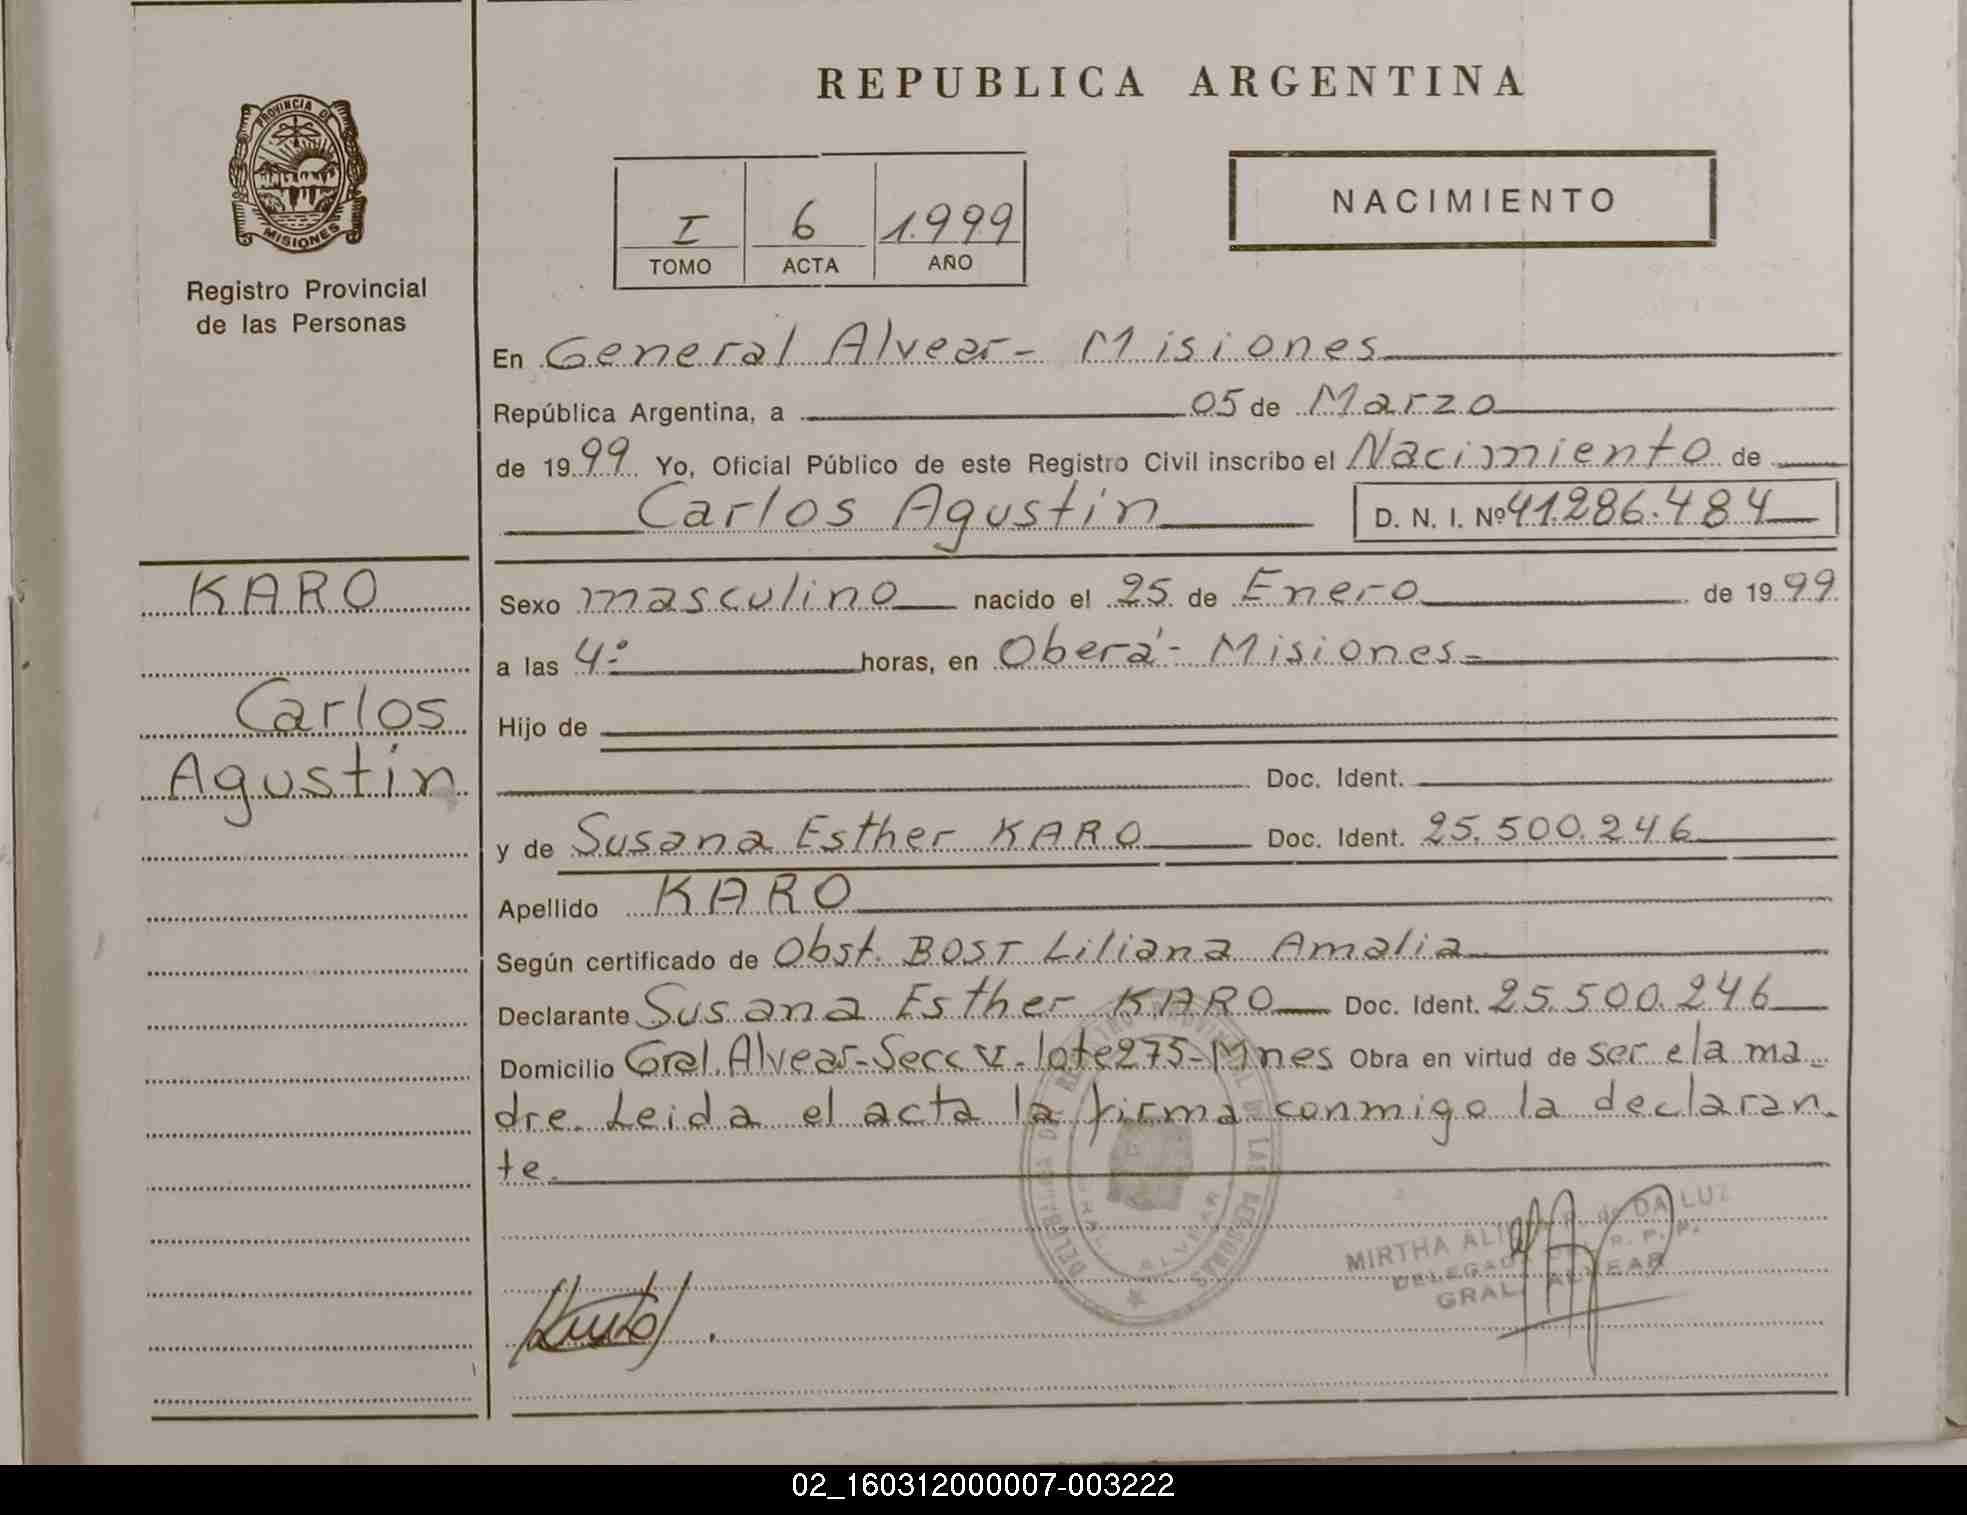 PROVINCIA DE
MISIONES
Registro Provincial
de las Personas
REPUBLICA ARGENTINA
I 6 1.999
TOMO ACTA AÑO
NACIMIENTO
En General Alvear- Misiones
República Argentina, a 05 de Marzo
de 1999. Yo, Oficial Público de este Registro Civil inscribo el Nacimiento de
Carlos Agustín D. N. I. Nº 41.286.484
KARO
Carlos
Agustín
Sexo masculino nacido el 25 de Enero de 1999
a las 4:º horas, en Oberá- Misiones-
Hijo de
Doc. Ident.
y de Susana Esther KARO Doc. Ident. 25.500.246
Apellido KARO
Según certificado de Obst. BOST Liliana Amalia
Declarante Susana Esther KARO Doc. Ident. 25.500.246
Domicilio Gral. Alvear-Secc V-lote275-Mnes Obra en virtud de ser ela ma-
dre. Leida el acta la firma conmigo la declaran-
te.
REGISTRO PROVINCIAL DE LAS PERSONAS
GRAL. ALVEAR
MIRTHA de DA LUZ
DELEGADA R. P. P.
GRAL. ALVEAR
02_160312000007-003222